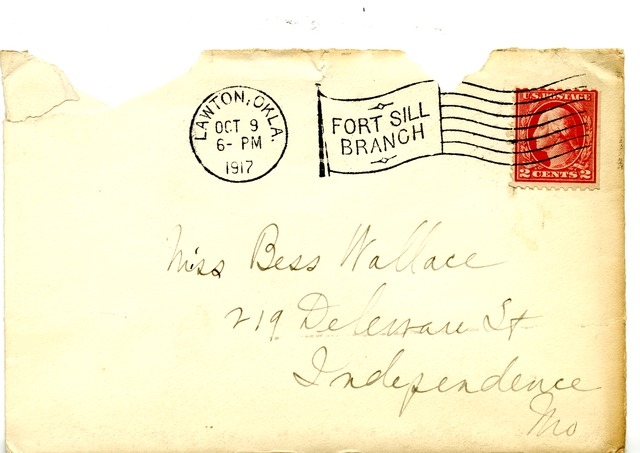 LAWTON, OKLA.
OCT 9
6- PM
1917
FORT SILL
BRANCH
U.S. POSTAGE
2 CENTS 2
Miss Bess Wallace
219 Deleware St
Independence
Mo